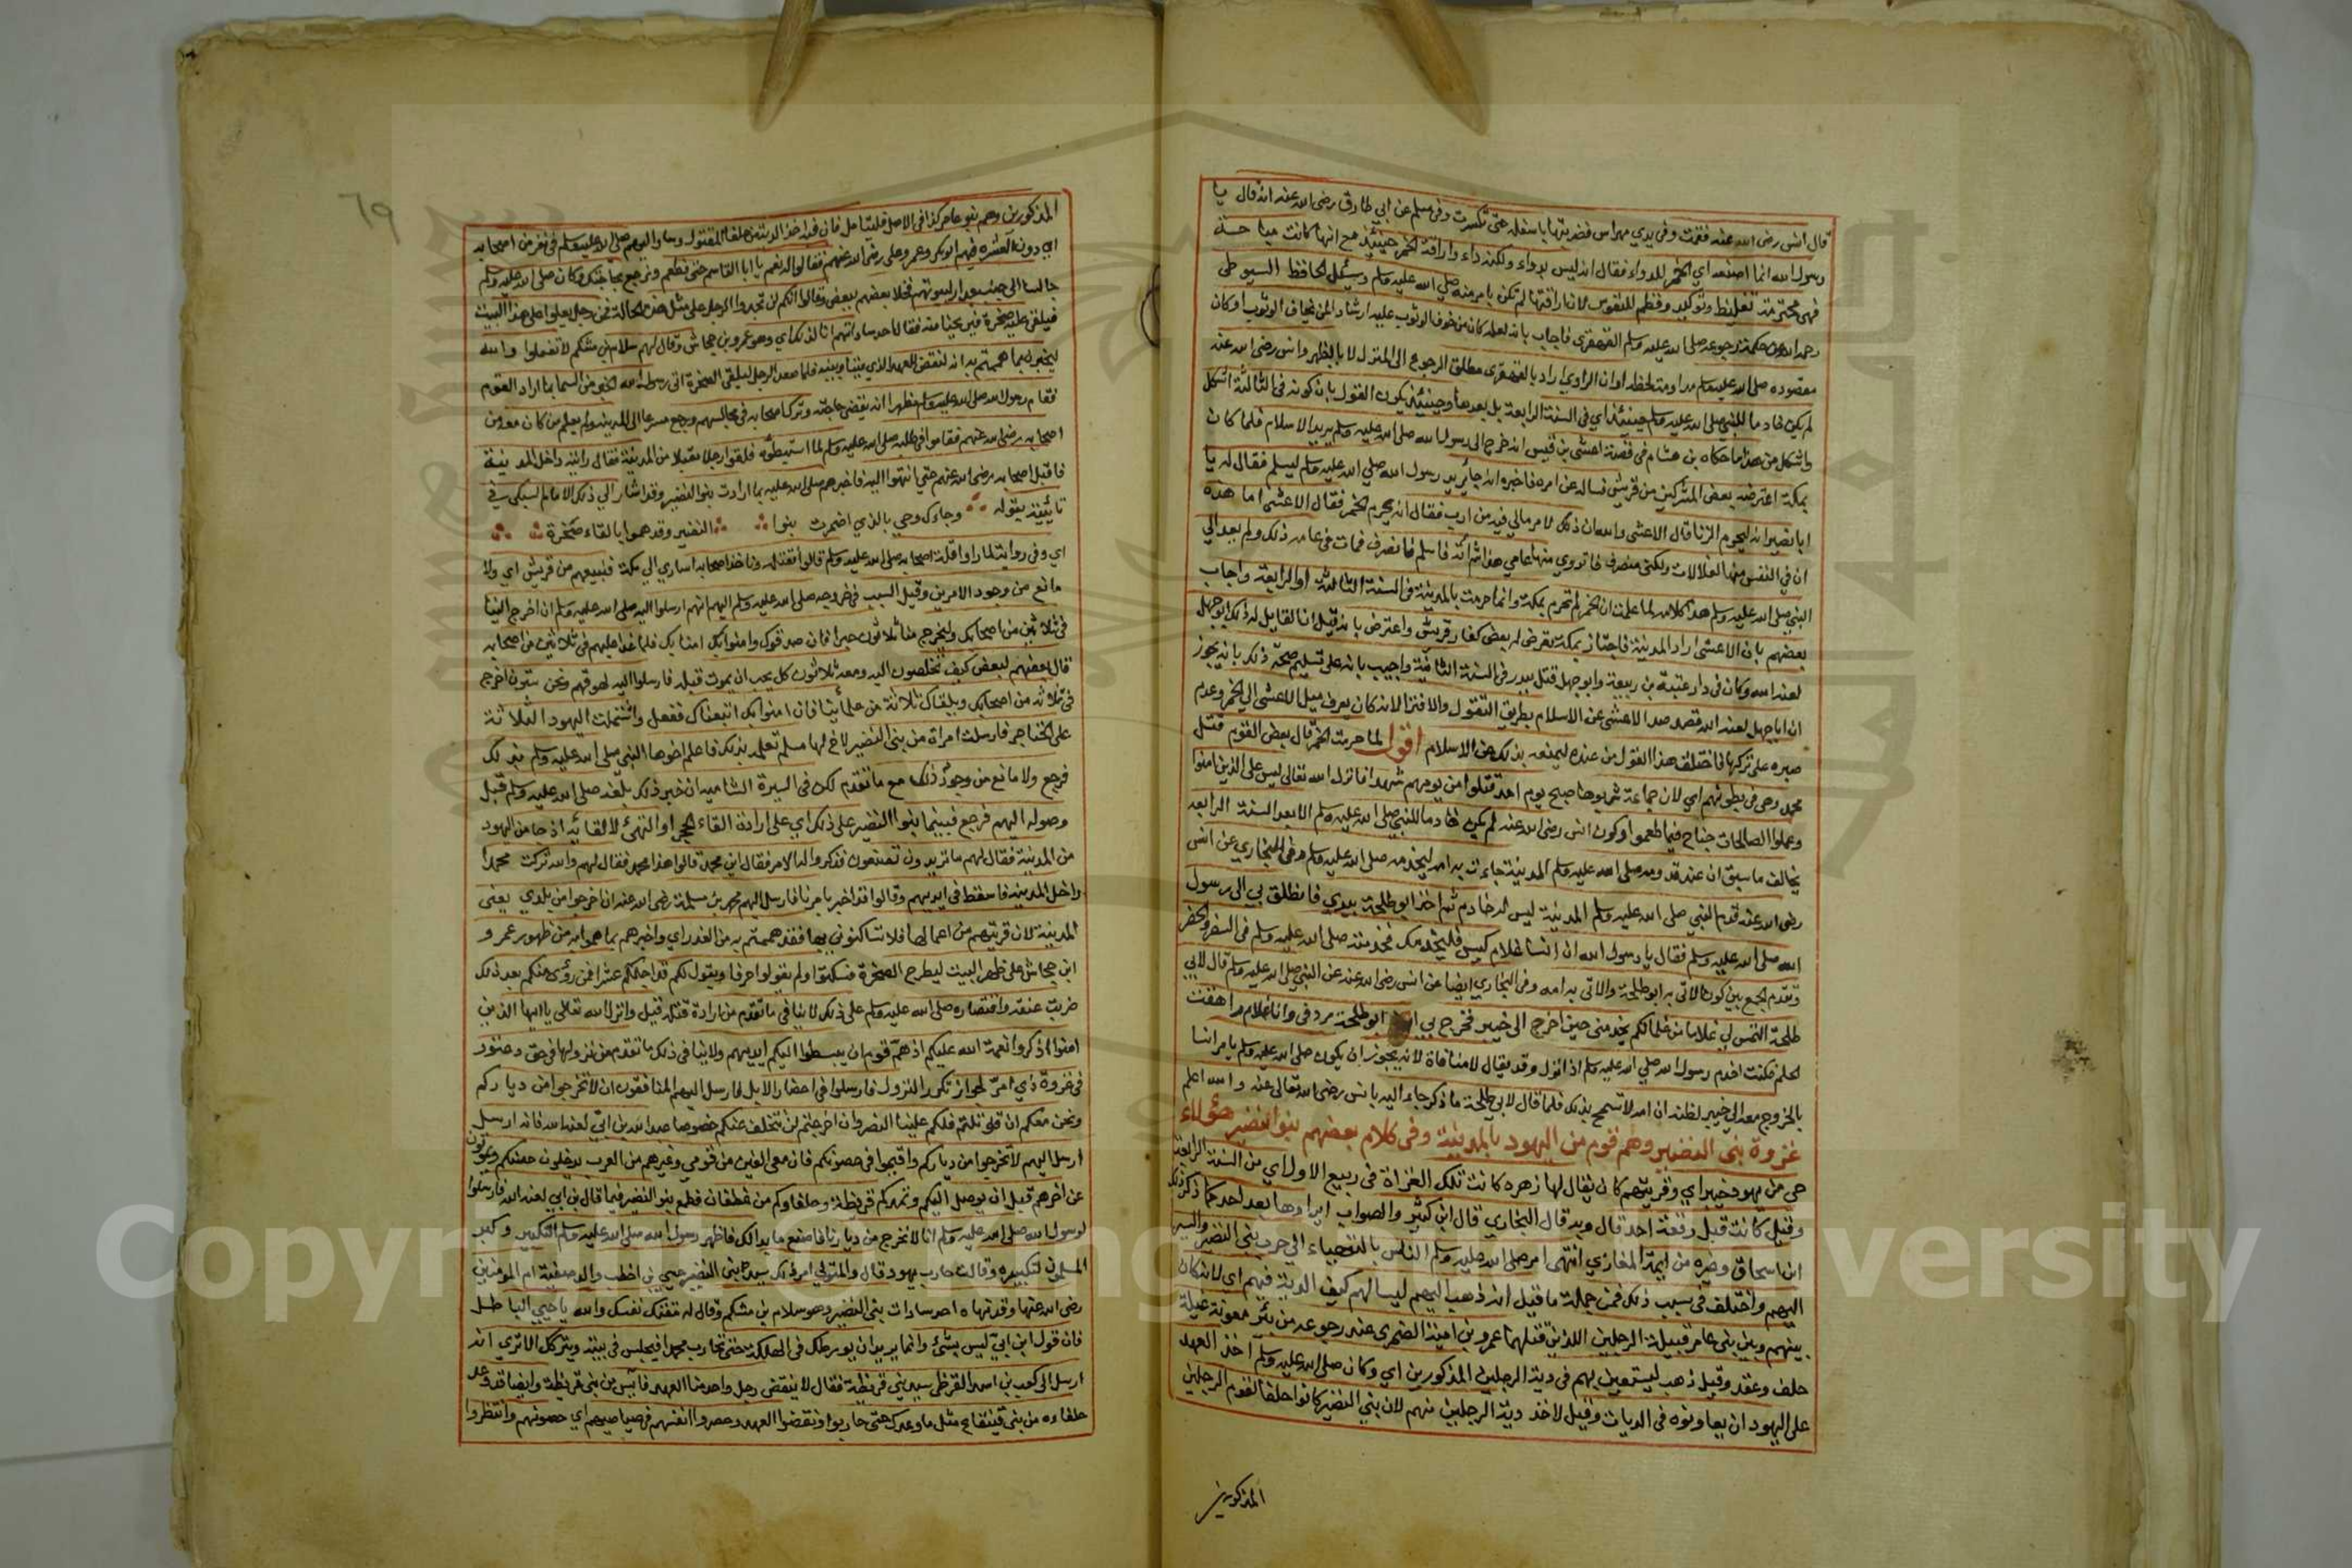 قال انس رضي الله عنه فقمت وفي يدي مهراس فضربتها باسفله حتى تكسرت وفي مسلم عن ابي طارق رضي الله عنه انه قال يا
رسول الله انما اصنعه اي الخمر للدواء فقال انه ليس بدواء ولكنه داء واراقة الخمر حينئذ مع انها كانت مباحة
فهي محترمة تغليظ وتوكيد وفطم للنفوس لان اراقتها لم تكن بامر منه صلى الله عليه وسلم وسئل الحافظ السيوطي
رحمه الله عن حكمة رجوعه صلى الله عليه وسلم القهقرى فاجاب بانه لعله كان من خوف الوثوب عليه ارشادا لمن يخاف الوثوب او كان
مقصوده صلى الله عليه وسلم مداومة لحظه او ان الراوي اراد بالقهقرى مطلق الرجوع الى المنزل لا بالظهر وانس رضي الله عنه
لم يكن خادما للنبي صلى الله عليه وسلم حينئذ اي في السنة الرابعة بل بعدها وحينئذ يكون القول بان كونه في الثالثة اشكل
واشكل من هذا ما حكاه بن هشام في قصة اعشى بن قيس انه خرج الى رسول الله صلى الله عليه وسلم يريد الاسلام فلما كان
بمكة اعترضه بعض المشركين من قريش فساله عن امره فاخبره انه جاء يريد رسول الله صلى الله عليه وسلم ليسلم فقال له يا
ابا بصير انه ليحرم الزنا قال الاعشى والله ان ذلك لامر مالي فيه من ارب فقال انه يحرم الخمر فقال الاعشى اما هذه
ان في النفس منها لعلالات ولكني منصرف فاتروي منها عامي هذا ثم آته فاسلم فانصرف فمات في عامه ذلك ولم يعد الى
النبي صلى الله عليه وسلم هذا كلامه لما علمت ان الخمر لم تحرم بمكة وانما حرمت بالمدينة في السنة الثالثة او الرابعة واجاب
بعضهم بان الاعشى اراد المدينة فاجتاز بمكة فعرض له بعض كفار قريش واعترض بانه قيل ان القايل له ذلك ابو جهل
لعنه الله وكان في دار عتبة بن ربيعة وابو جهل قتل ببدر في السنة الثانية واجيب بانه على تسليم صحة ذلك بانه يجوز
ان ابا جهل لعنه الله قصد صد الاعشى عن الاسلام بطريق التقول والافترا لانه كان يعرف ميل الاعشى الى الخمر وعدم
صبره على تركها فاختلق هذا القول من عنده ليمنعه بذلك عن الاسلام اقول لما حرمت الخمر قال بعض القوم قتل
محمد وهي في بطونهم اي لان جماعة شربوها صبح يوم احد قتلوا من يومهم شهدا فانزل الله تعالى ليس على الذين امنوا
وعملوا الصالحات جناح فيما طعموا وكون انس رضي الله عنه لم يكن خادما للنبي صلى الله عليه وسلم الا بعد السنة الرابعة
يخالف ما سبق ان عند قدومه صلى الله عليه وسلم المدينة جاءت به امه ليخدمه صلى الله عليه وسلم وفي البخاري عن انس
رضي الله عنه قدم النبي صلى الله عليه وسلم المدينة ليس له خادم ثم اخذ ابو طلحة بيدي فانطلق بي الى رسول
الله صلى الله عليه وسلم فقال يا رسول الله ان انسا غلام كيس فليخدمك فخدمته صلى الله عليه وسلم في السفر والحضر
وتقدم الجمع بين كون الاتي به ابو طلحة والاتي به امه وفي البخاري ايضا عن انس رضي الله عنه عن النبي صلى الله عليه وسلم قال لابي
طلحة التمس لي غلاما من غلمانكم يخدمني حين اخرج الى خيبر فخرج بي ابو طلحة مردفي وانا غلام راهقت
الحلم فكنت اخدم رسول الله صلى الله عليه وسلم اذا نزل وقد يقال لا منافاة لانه يجوز ان يكون صلى الله عليه وسلم يامر انسا
بالخروج معه الى خيبر لظنه ان امه لا تسمح بذلك فلما قال لابي طلحة ما ذكر جاء اليه بانس رضي الله تعالى عنه والله اعلم
غزوة بني النضير وهم قوم من اليهود بالمدينة وفي كلام بعضهم بنو النضير هؤلاء
حي من يهود خيبر اي وقريتهم كان يقال لها زهره كانت تلك الغزاة في ربيع الاول اي من السنة الرابعة
وقيل كانت قبل وقعة احد قال وبه قال البخاري قال ابن كثير والصواب ايرادها بعد احد كما ذكر ذلك
ابن اسحاق وغيره من ايمة المغازي انتهى امر صلى الله عليه وسلم الناس بالتهيئ الى حرب بني النضير والسير
اليهم واختلف في سبب ذلك فمن جملة ما قيل انه ذهب اليهم ليسالهم كيف الدية فيهم اي لانه كان
بينهم وبين بني عامر قبيلة الرجلين اللذين قتلهما عمرو بن امية الضمري عند رجوعه من بئر معونة غيلة
حلف وعقد وقيل ذهب ليستعين بهم في دية الرجلين المذكورين اي وكان صلى الله عليه وسلم اخذ العهد
على اليهود ان يعاونوه في الديات وقيل لاخذ دية الرجلين منهم لان بني النضير كانوا حلفا لقوم الرجلين
المذكورين
٦٩
المذكورين وهم بنو عامر كذا في الاصل فليتامل فان فيه اخذ الدية من حلفا المقتول وسار اليهم صلى الله عليه وسلم في نفر من اصحابه
اي دون العشرة فيهم ابو بكر وعمر وعلي رضي الله عنهم فقالوا له نعم يا ابا القاسم حتى تطعم وترجع بحاجتك وكان صلى الله عليه وسلم
جالسا الى جنب جدار لبيوتهم فخلا بعضهم ببعض وقالوا انكم لن تجدوا الرجل على مثل هذه الحالة فمن رجل يعلو على هذا البيت
فيلقي عليه صخرة فيريحنا منه فقال احد ساداتهم انا لذلك اي وهو عمرو بن جحاش وقال لهم سلام بن مشكم لا تفعلوا والله
ليخبرن بما هممتم به انه لنقض للعهد الذي بيننا وبينه فلما صعد الرجل ليلقي الصخرة اتى رسول الله الخبر من السما بما اراد القوم
فقام رسول الله صلى الله عليه وسلم مظهرا انه يقضي حاجته وترك اصحابه في مجالسهم ورجع مسرعا الى المدينة ولم يعلم من كان معه من
اصحابه رضي الله عنهم فقاموا في طلبه صلى الله عليه وسلم لما استبطؤه فلقوا رجلا مقبلا من المدينة فقال رايته داخل المدينة
فاقبل اصحابه رضي الله عنهم حتى انتهوا اليه فاخبرهم صلى الله عليه بما ارادت بنو النضير وقد اشار الى ذلك الامام السبكي في
تائيته بقوله وجاءك وحي بالذي اضمرت بنوا النضير وقد هموا بالقاء صخرة
اي وفي رواية لما راوا قلة اصحابه صلى الله عليه وسلم قالوا نقتله وناخذ اصحابه اسارى الى مكة فنبيعهم من قريش اي ولا
مانع من وجود الامرين وقيل السبب في خروجه صلى الله عليه وسلم اليهم انهم ارسلوا اليه صلى الله عليه وسلم ان اخرج الينا
في ثلاثين من اصحابك وليخرج منا ثلاثون حبرا فان صدقوك وامنوا بك امنا بك فلما غدا عليهم في ثلاثين من اصحابه
قال بعضهم لبعض كيف تخلصون اليه ومعه ثلاثون كل يحب ان يموت قبله فارسلوا اليه كيف نفهم ونحن ستون اخرج
في ثلاثة من اصحابك ويلقاك ثلاثة من علمائنا فان امنوا بك اتبعناك ففعل واشتملت اليهود الثلاثة
على الخناجر فارسلت امراة من بني النضير لاخ لها مسلم تعلمه بذلك فاعلم اخوها النبي صلى الله عليه وسلم بذلك
فرجع ولا مانع من وجود ذلك مع ما تقدم لكن في السيرة الشامية ان خبر ذلك بلغه صلى الله عليه وسلم قبل
وصوله اليهم فرجع فبينما بنوا النضير على ذلك اي على ارادة القاء الحجر او التهيئ لالقائه اذ جا من اليهود
من المدينة فقال لهم ما تريدون تصنعون فذكروا له الامر فقال اين محمد قالوا هذا محمد فقال لهم والله تركت محمدا
داخل المدينه فاسقط في ايديهم وقالوا قد اخبر بامرنا فارسل اليهم محمد بن مسلمة رضي الله عنه ان اخرجوا من بلدي يعني
المدينة لان قريتهم من اعمالها فلا تساكنوني بها فقد هممتم به من الغدر اي واخبرهم بما هموا به من ظهور عمرو
ابن جحاش على ظهر البيت ليطرح الصخرة فسكتوا ولم يقولوا حرفا ويقول لكم قد اجلتكم عشرا فمن رؤي منكم بعد ذلك
ضربت عنقه واقتصاره صلى الله عليه وسلم على ذلك لا ينافي ما تقدم من ارادة قتله قيل وانزل الله تعالى يا ايها الذين
امنوا اذكروا نعمة الله عليكم اذ هم قوم ان يبسطوا اليكم ايديهم ولا ينافي ذلك ما تقدم من نزولها في حق دعثور
في غزوة ذي امر لجواز تكرر النزول فارسلوا في احضار الابل فارسل اليهم المنافقون ان لا تخرجوا من دياركم
ونحن معكم ان قوتلتم فلكم علينا النصر وان اخرجتم لن نتخلف عنكم خصوصا عبد الله بن ابي لعنه الله فانه ارسل
ارسل اليهم لا تخرجوا من دياركم واقيموا في حصونكم فان معي الفين من قومي وغيرهم من العرب يدخلون حصنكم ويموتون
عن اخرهم قبل ان يوصل اليكم وتمدكم قريظة وحلفاوكم من غطفان فطمع بنو النضير فيما قال بن ابي لعنه الله فارسلوا
لرسول الله صلى الله عليه وسلم انا لا نخرج من ديارنا فاصنع ما بدا لك فاظهر رسول الله صلى الله عليه وسلم التكبير وكبر
المسلمون لتكبيره وقالت حارب يهود قال والمتولي امر ذلك سيد بني النضير حيي بن اخطب والد صفية ام المومنين
رضي الله عنها وقد نهاه احد سادات بني النضير وهو سلام بن مشكم وقال له منتك نفسك والله يا حيي الباطل
فان قول ابن ابي ليس بشئ وانما يريد ان يورطك في الهلكة حتى تحارب محمدا فيجلس في بيته ويتركك الا ترى انه
ارسل الى كعب بن اسد القرظي سيد بني قريظة فقال لا ينقض رجل واحد منا العهد فايس من بني قريظة وايضا قد وعد
حلفاءه من بني قينقاع مثل ما وعدك حتى حاربوا ونقضوا العهد وحصروا انفسهم في صياصيهم اي حصونهم وانتظروا
Copyright © King Saud University